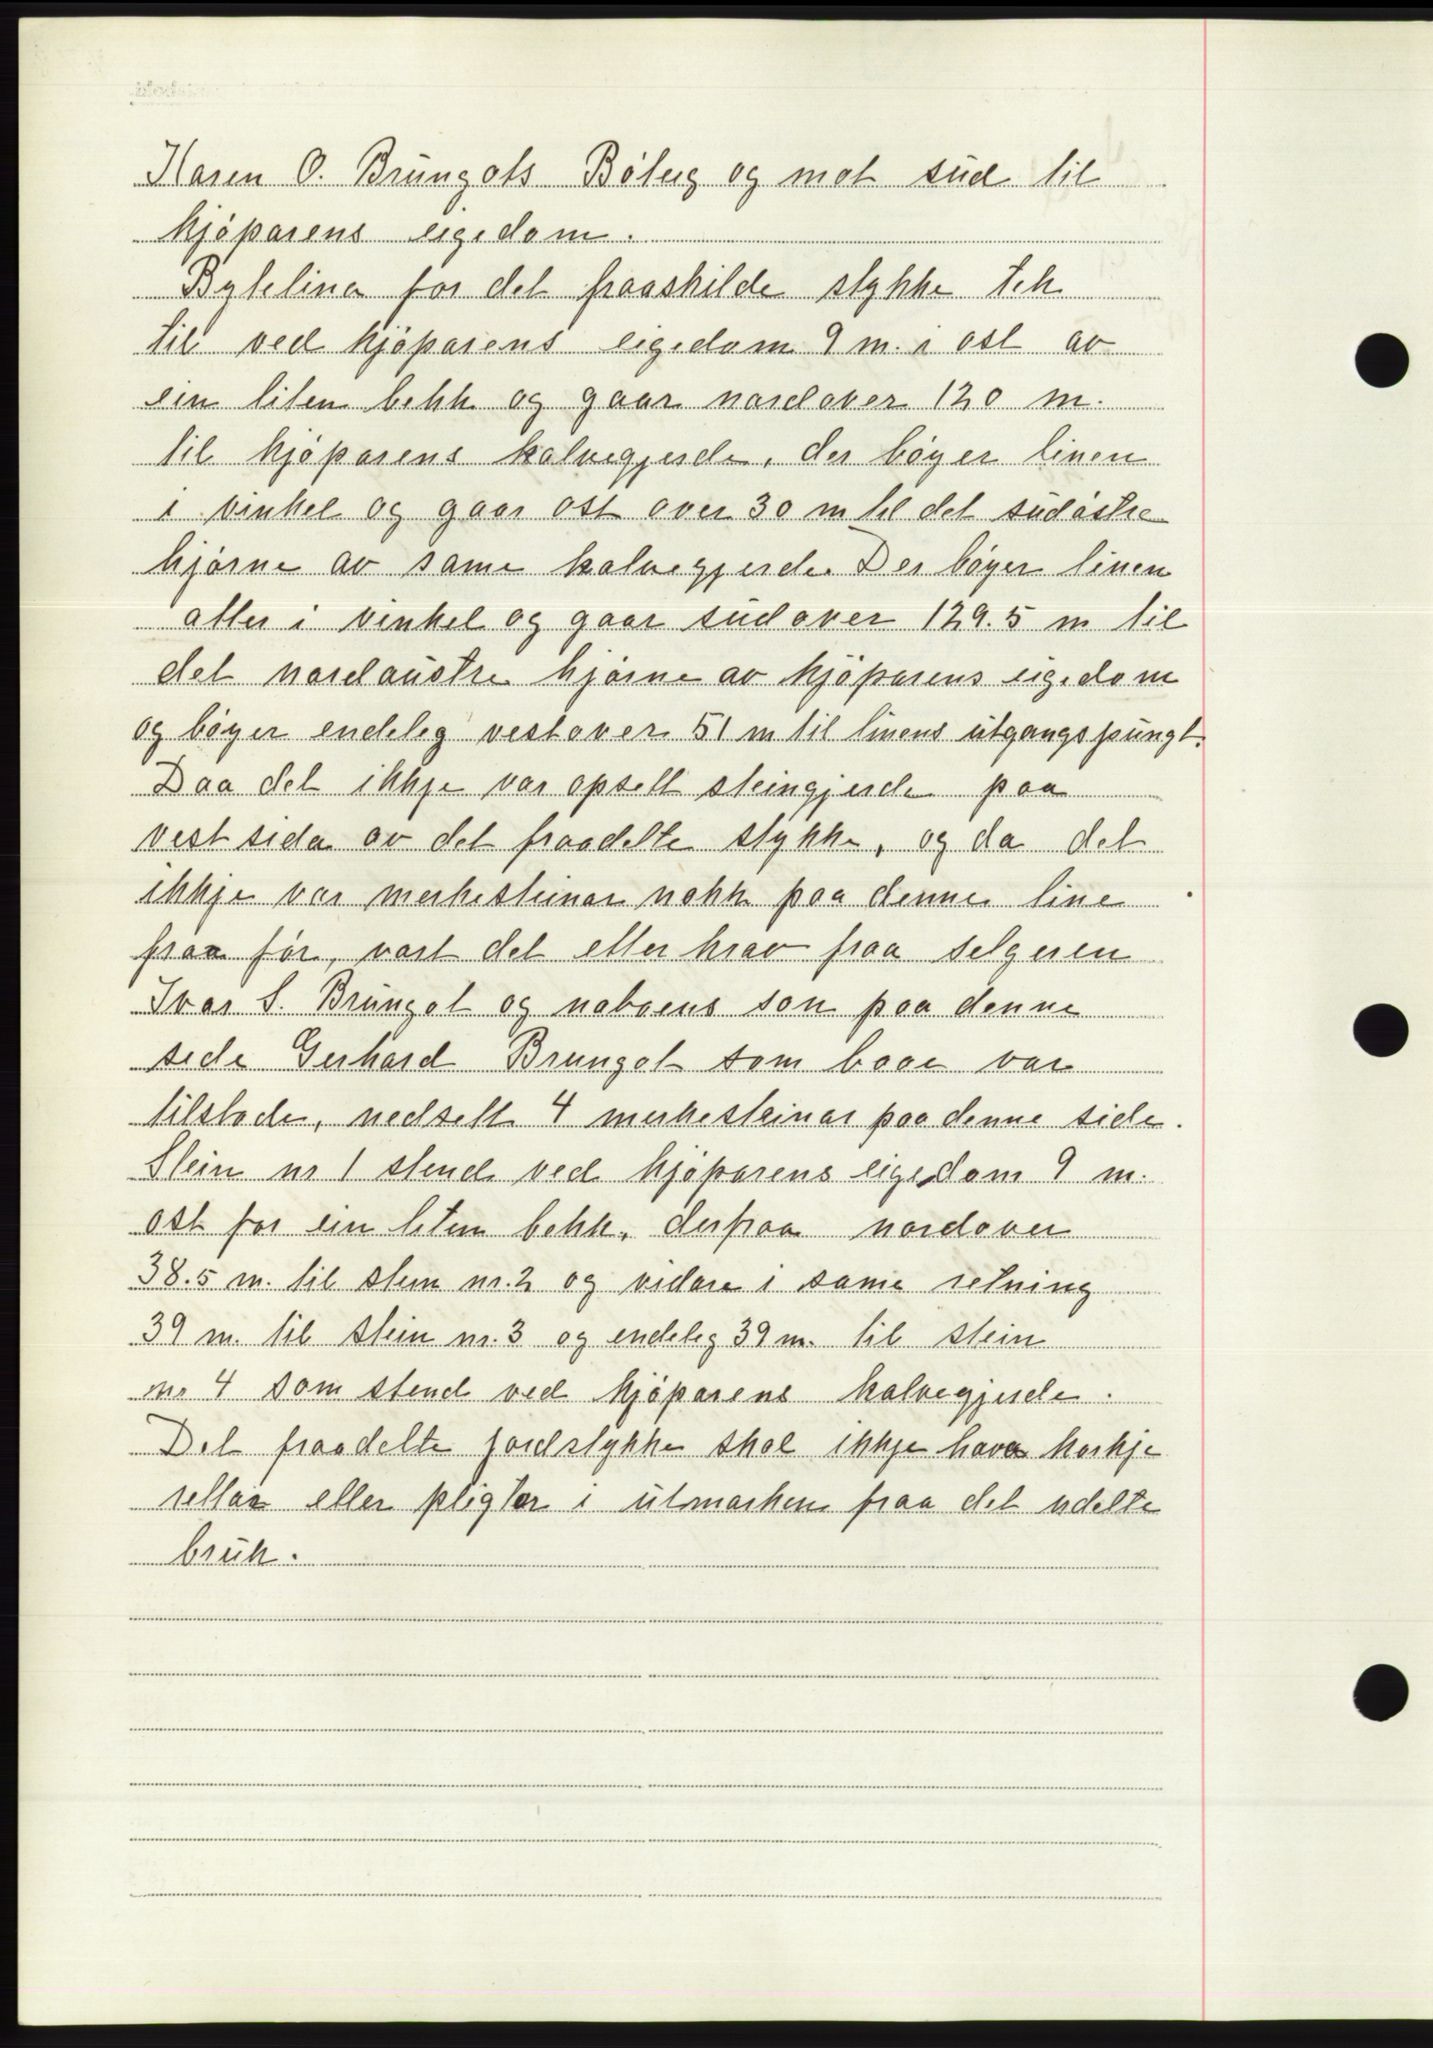 Karen O. Brüngots Böteig og mot süd til
kjöparens eigedom.
Bytelina for det fraaskilde stykke tek
til ved kjöparens eigedom 9 m. i ost av
ein liten bekk og gaar nordover 120 m.
til kjöparens kalvegjerde, der böyer linen
i vinkel og gaar ost over 30 m til det südöstre
hjörne av same kalvegjerde. Der böyer linen
atter i vinkel og gaar südover 129.5 m til
det nordaüstre hjörne av kjöparens eigedom
og böyer endeleg vestover 51 m til linens ütgangspüngt.
Daa det ikkje var opsett steingjerde paa
vestsida av det fraadelte stykke, og da det
ikkje var merkesteinar nokk paa denne line
fraa för, vart det etter krav fraa selgeren
Ivar S. Brüngot og naboens son paa denne
side Gerhard Brungot som baae var
tilstade, nedsett 4 merkesteinar paa denne side.
Stein nr 1 stend ved kjöparens eigedom 9 m.
ost for ein liten bekk, derfraa nordover
38.5 m. til stein nr. 2 og vidare i same retning
39 m. til stein nr. 3 og endeleg 39 m. til stein
nr 4 som stend ved kjöparens kalvegjerde.
Det fraadelte jordstykke skal ikkje hava korkje
rettar eller pligter i ütmarken fraa det udelte
brük.